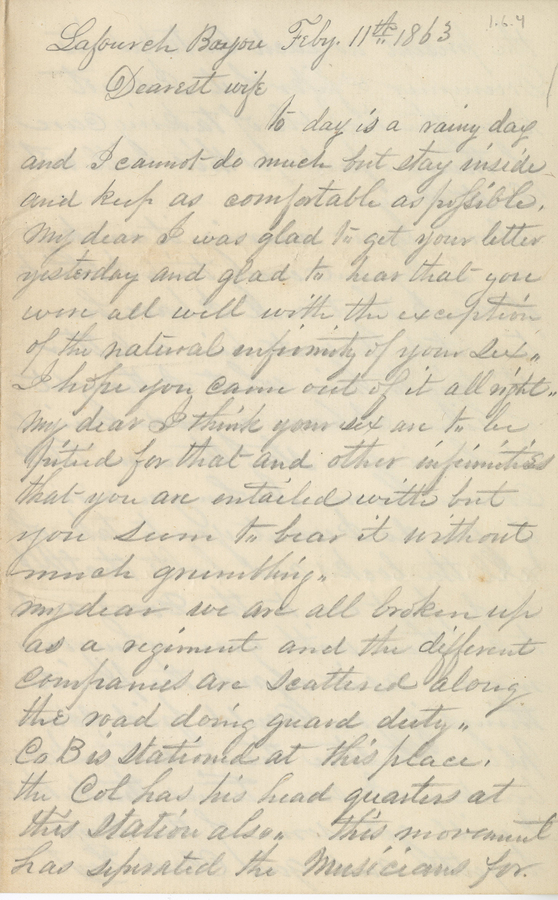 1.6.4
Lafourch Bayou Feby. 11th 1863
Dearest wife
to day is a rainy day
and I cannot do much but stay inside
and keep as comfortable as possible.
My dear I was glad to get your letter
yesterday and glad to hear that you
were all well with the exception
of the natural infirmity of your sex"
I hope you came out of it all right"
my dear I think your sex are to be
pitied for that and other infirmities
that you are entailed with but
you seem to bear it without
much grumbling"
my dear we are all broken up
as a regiment and the different
companies are scattered along
the road doing guard duty"
Co B is stationed at this place.
the Col has his head quarters at
this Station also" this movement
has seperated the Musicians for.